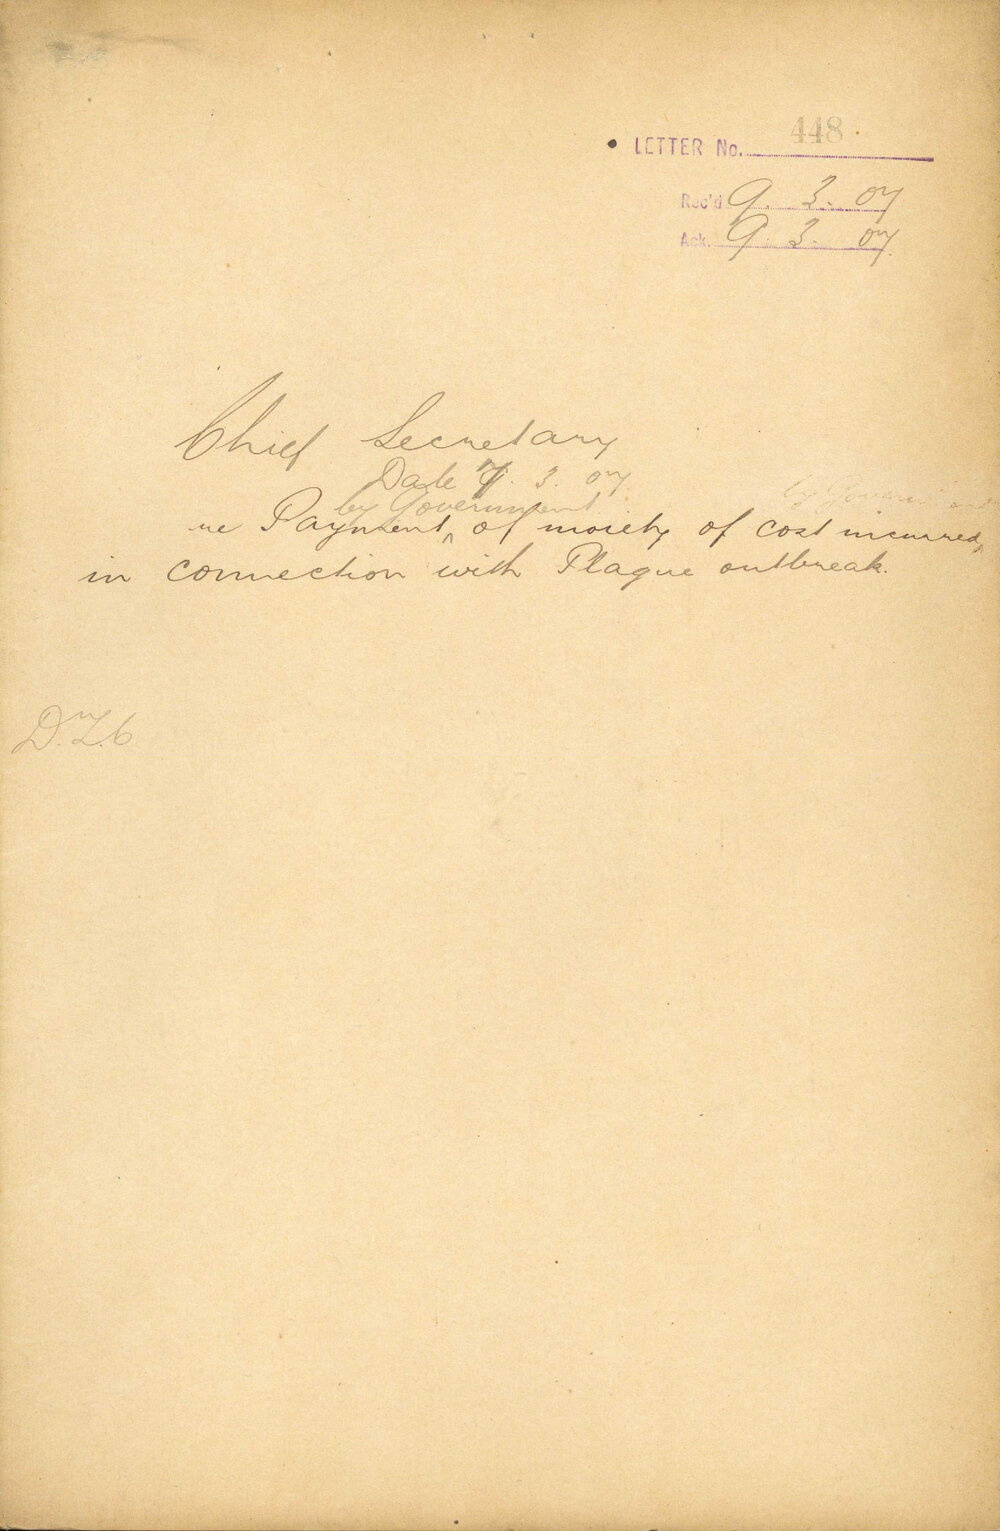 LETTER No. 448.
Rec'd 9. 3. 07
Ack. 9. 3. 07
Chief Secretary
Date 7. 3. 07
by Government
re Payment of moiety of cost incurred
in connection with Plague outbreak.